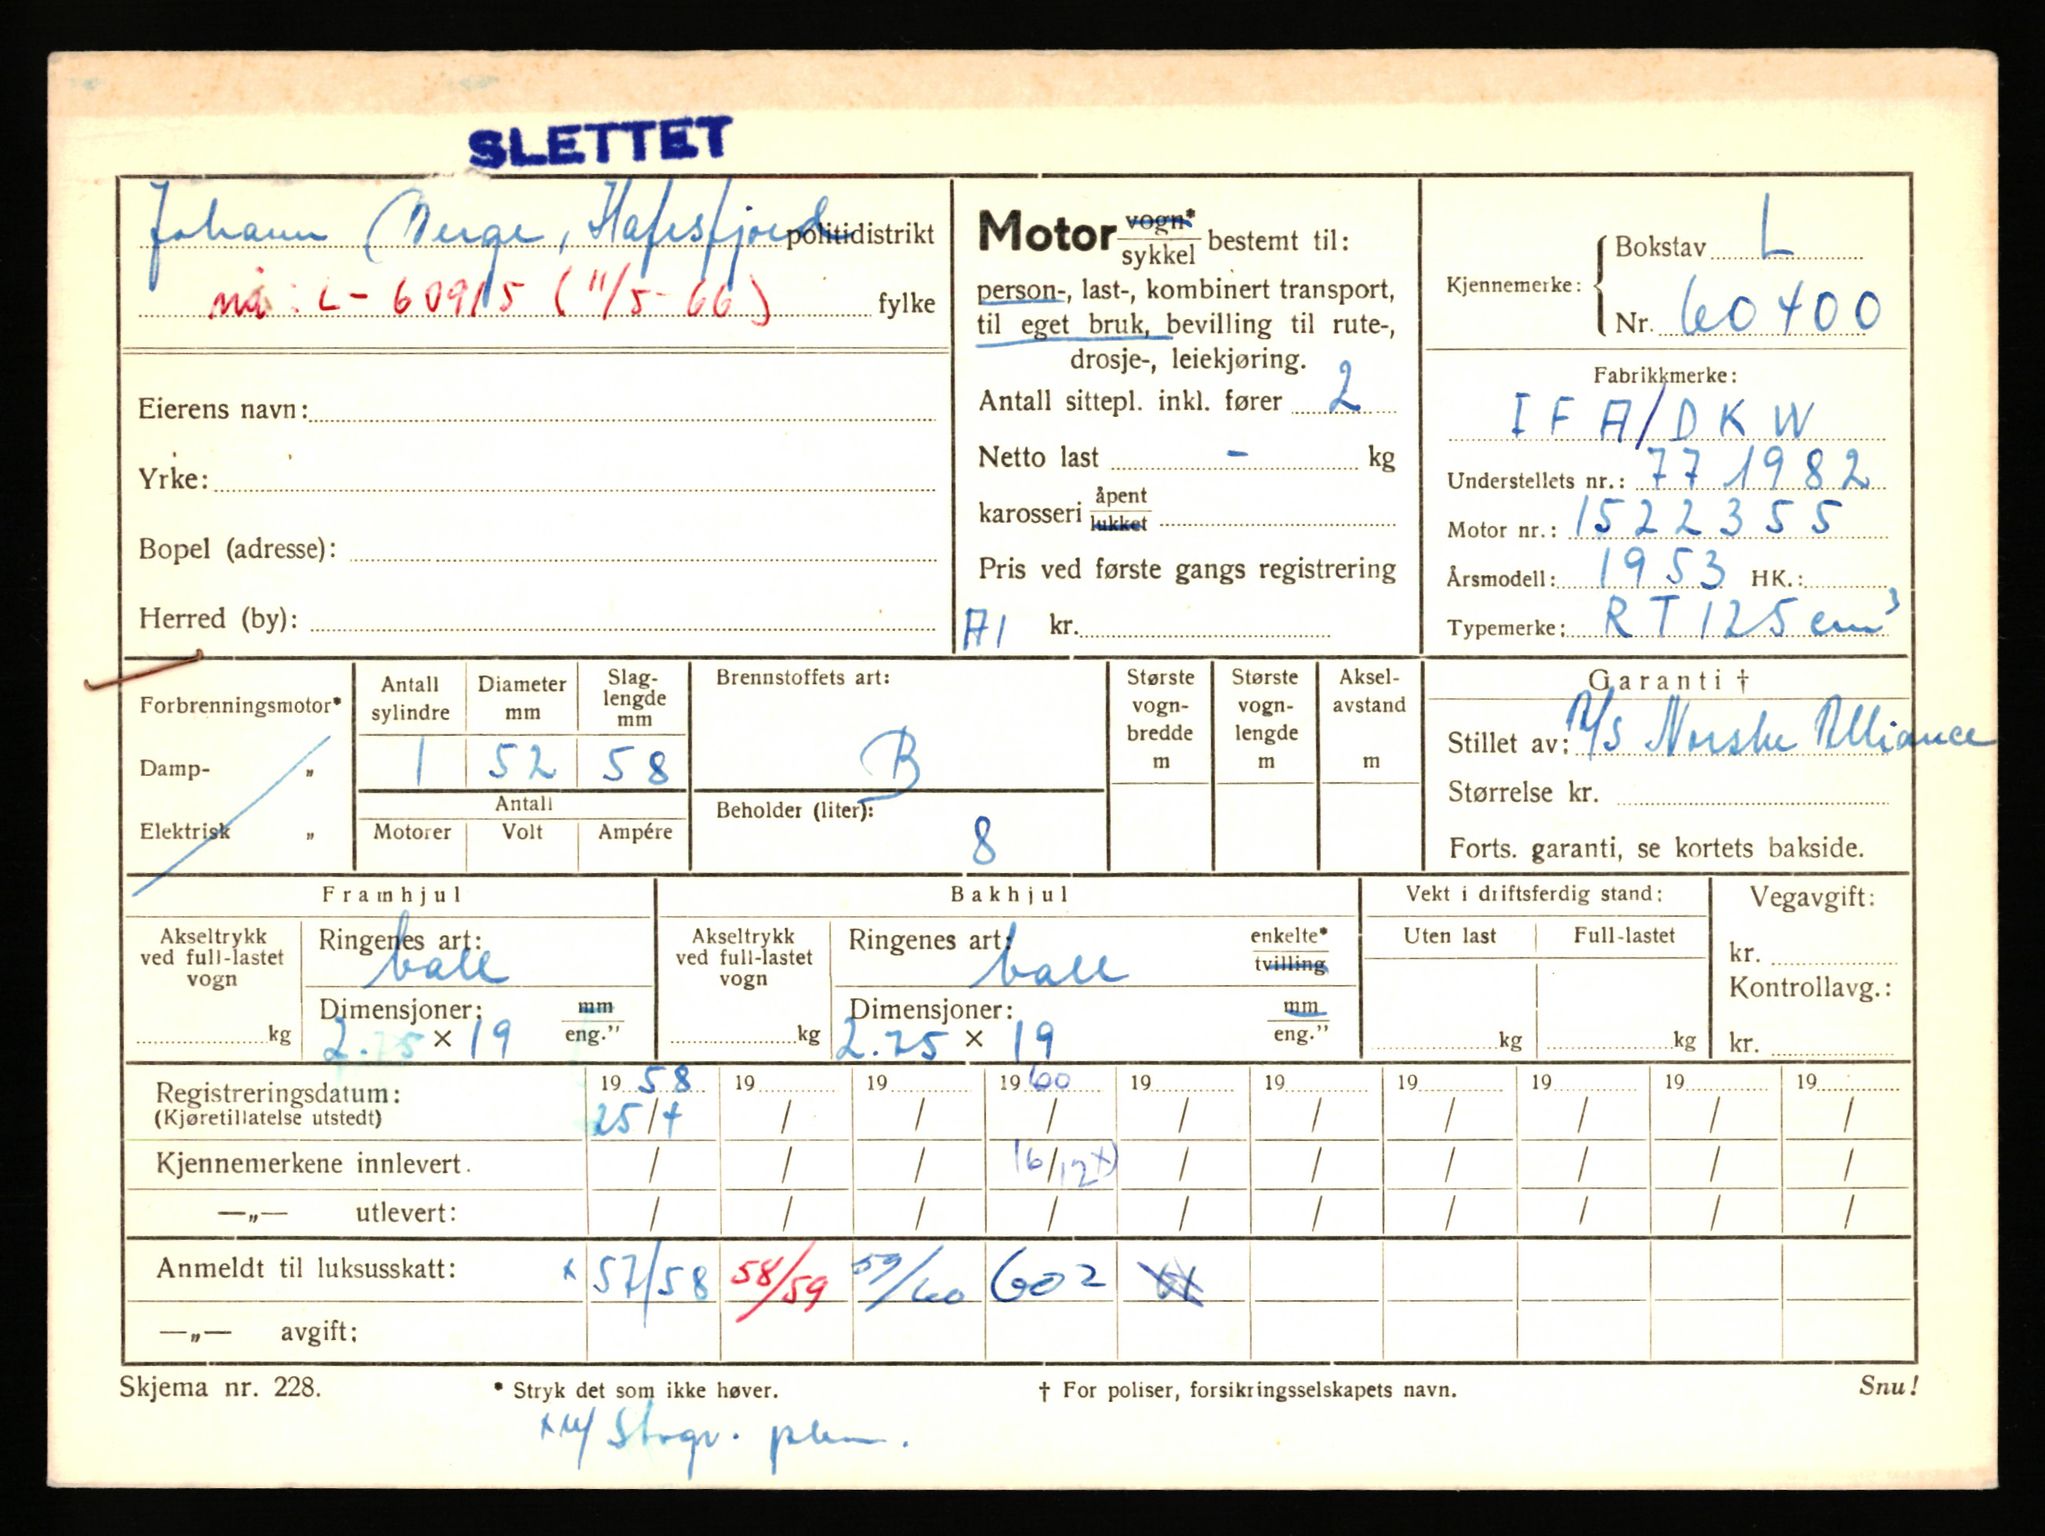 SLETTET
Johann Berge, Hafrsfjord politidistrikt
nå: L - 60915 (11/5-66) fylke
Eierens navn:
Yrke:
Bopel (adresse):
Herred (by):
Motor vogn* sykkel bestemt til:
person-, last-, kombinert transport,
til eget bruk, bevilling til rute-,
drosje-, leiekjøring.
Antall sittepl. inkl. fører 2
Netto last - kg
karosseri åpent lukket
Pris ved første gangs registrering
A1 kr.
Kjennemerke: Bokstav L
Nr. 60400
Fabrikkmerke:
IFA/DKW
Understellets nr.: 771982
Motor nr.: 1522355
Årsmodell: 1953 HK.:
Typemerke: RT 125 cm³
Forbrenningsmotor*
Damp- „
Elektrisk „
Antall sylindre Diameter mm Slag-lengde mm
1 52 58
Antall
Motorer Volt Ampére
Brennstoffets art:
B
Beholder (liter):
8
Største vogn-bredde m
Største vogn-lengde m
Aksel-avstand m
Garanti †
Stillet av: A/S Norske Alliance
Størrelse kr.
Forts. garanti, se kortets bakside.
Framhjul
Akseltrykk ved full-lastet vogn
kg
Ringenes art:
ball
Dimensjoner: mm eng."
2.75 × 19
Bakhjul
Akseltrykk ved full-lastet vogn
kg
Ringenes art: enkelte* tvilling
ball
Dimensjoner: mm eng."
2.75 × 19
Vekt i driftsferdig stand:
Uten last Full-lastet
kg kg
Vegavgift:
kr.
Kontrollavg.:
kr.
Registreringsdatum: 19 58 19 19 19 60 19 19 19 19 19 19
(Kjøretillatelse utstedt) 25/4 / / / / / / / / /
Kjennemerkene innlevert. / / / 16/12 x) / / / / / /
—„— utlevert: / / / / / / / / / /
Anmeldt til luksusskatt: x 57/58 58/59 59/60 602 61
—„— avgift:
Skjema nr. 228. * Stryk det som ikke høver. † For poliser, forsikringsselskapets navn. Snu!